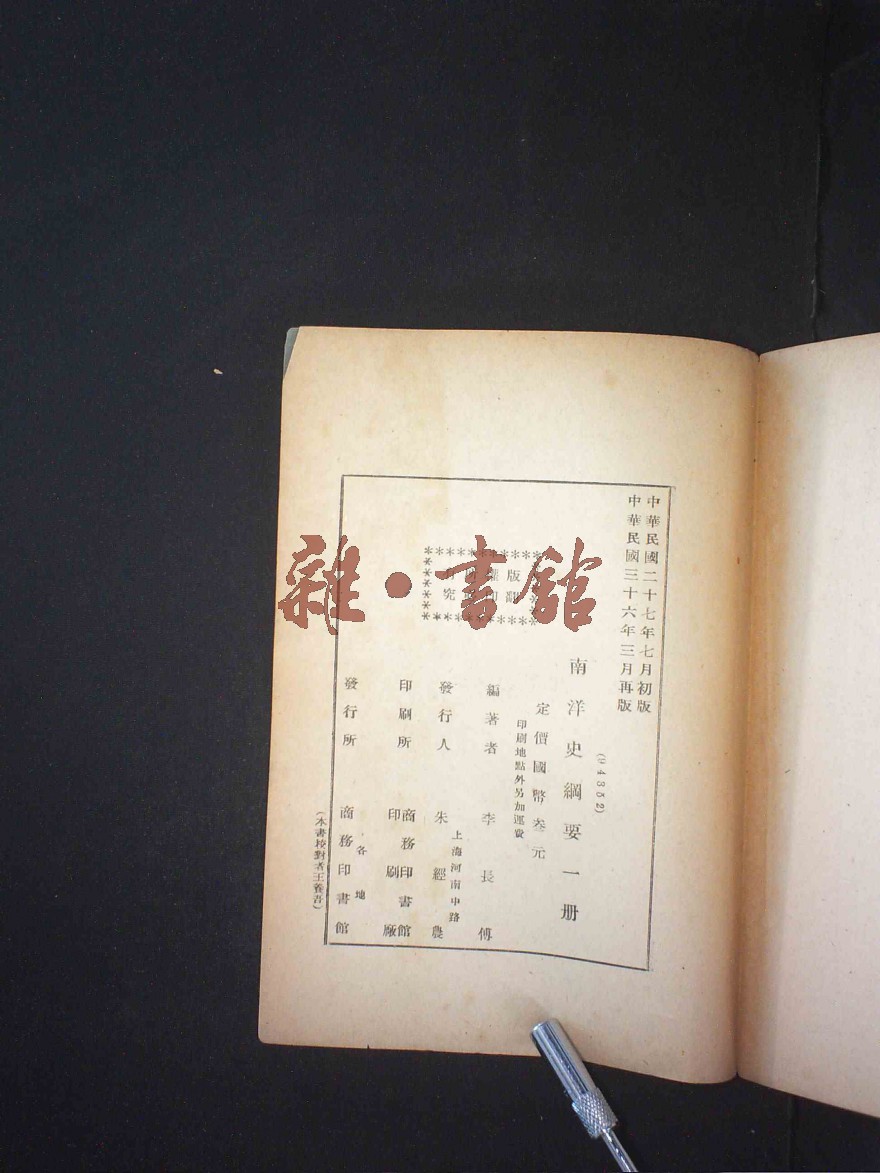 中華民國二十七年七月初版
中華民國三十六年三月再版
(94352)
南洋史綱要一册
定價國幣叁元
印刷地點外另加運費
版權所有
翻印必究
編著者 李長傅
上海河南中路
發行人 朱經農
印刷所 商務印書館
印刷廠
發行所 商務印書館
各地
(本書校對者王養吾)
雜·書館